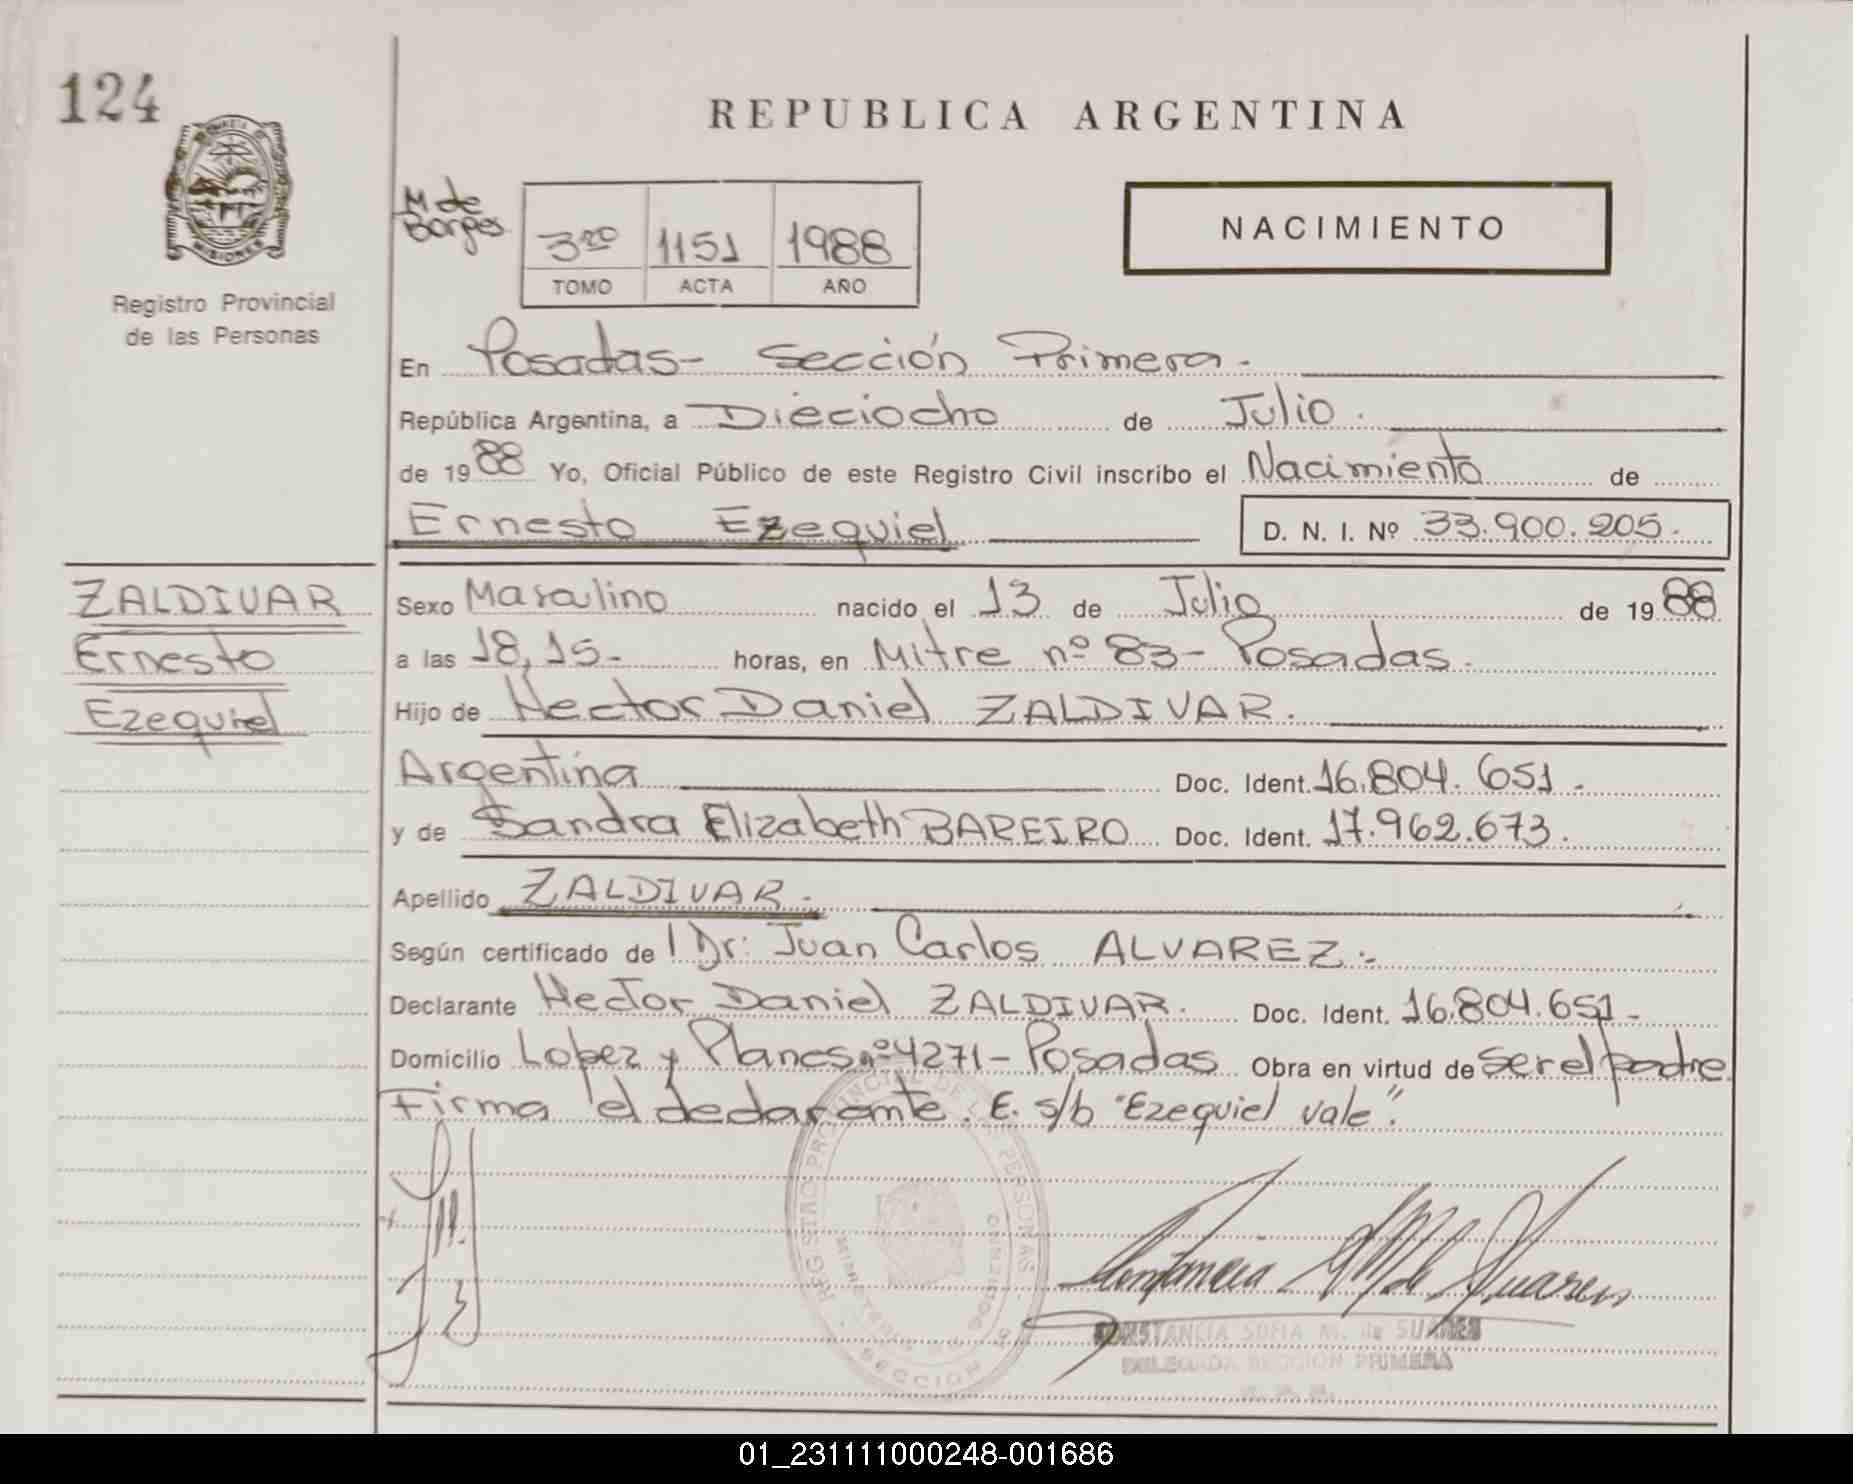 124
REPUBLICA ARGENTINA
MISIONES
Registro Provincial
de las Personas
M de
Borges
3ro 1151 1988
TOMO ACTA AÑO
NACIMIENTO
En Posadas- Sección Primera.
República Argentina, a Dieciocho de Julio.
de 1988 Yo, Oficial Público de este Registro Civil inscribo el Nacimiento de
Ernesto Ezequiel D. N. I. Nº 33.900.205.
ZALDIVAR
Ernesto
Ezequiel
Sexo Masculino nacido el 13 de Julio de 1988
a las 18,15- horas, en Mitre nº 83- Posadas.
Hijo de Hector Daniel ZALDIVAR.
Argentina Doc. Ident. 16.804.651.-
y de Sandra Elizabeth BAREIRO Doc. Ident. 17.962.673.
Apellido ZALDIVAR.
Según certificado de l Dr: Juan Carlos ALVAREZ.-
Declarante Hector Daniel ZALDIVAR. Doc. Ident. 16.804.651-
Domicilio Lopez y Planes nº 4271- Posadas Obra en virtud de ser el padre
Firma el declarante. E. s/b "Ezequiel vale".
REGISTRO PROVINCIAL DE LAS PERSONAS
SECCION
CONSTANCIA SOFIA M. de SUARES
DELEGADA SECCION PRIMERA
01_231111000248-001686